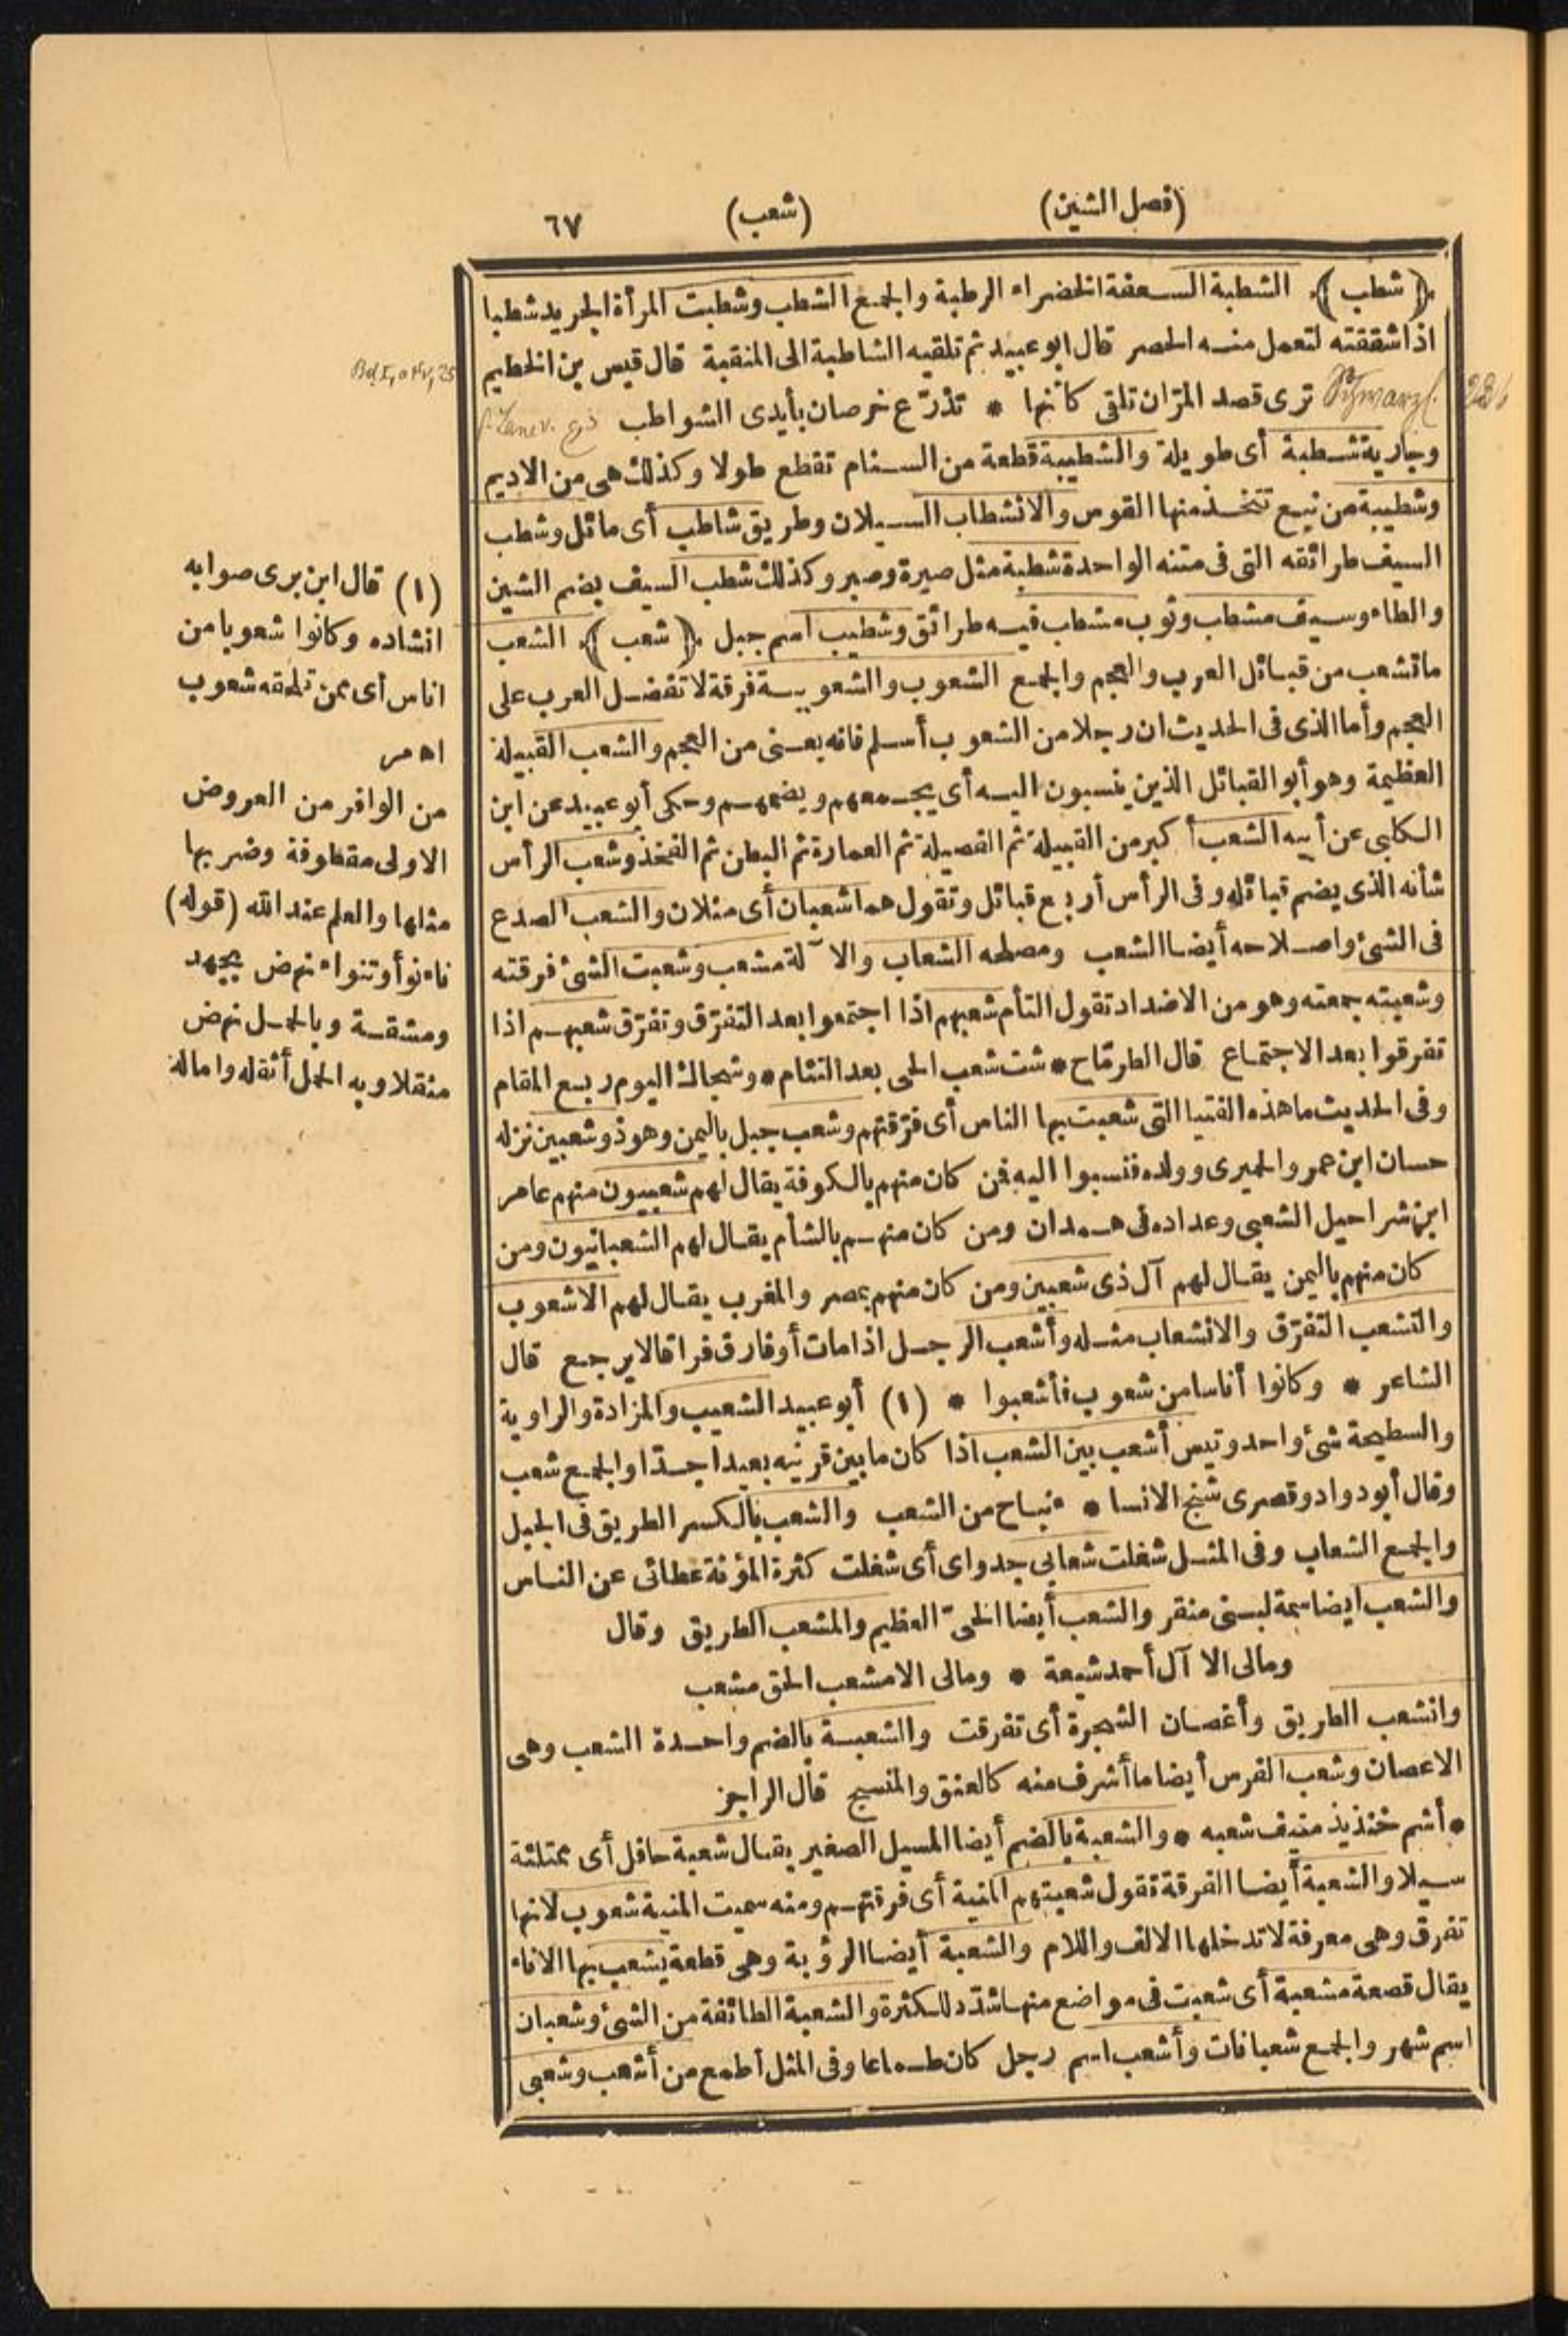 (فصل الشين)
(شعب)
٦٧
﴿شطب﴾ الشطبة السعفة الخضراء الرطبة والجمع الشطب وشطبت المرأة الجريد شطبا
اذا شققته لتعمل منه الحصر قال ابو عبيد ثم تلقيه الشاطبة الى المنقية قال قيس بن الخطيم
ترى قصد المرّان تلقى كأنها * تذرّع خرصان بأيدى الشواطب
وجارية شطبة أى طويلة والشطيبة قطعة من السنام تقطع طولا وكذلك هى من الاديم
وشطيبة من نبع تتخذ منها القوس والانشطاب السيلان وطريق شاطب أى مائل وشطب
السيف طرائقه التى فى متنه الواحدة شطبة مثل صيرة وصير وكذلك شطب السيف بضم الشين
والطاء وسيف مشطب وثوب مشطب فيه طرائق وشطيب اسم جبل ﴿شعب﴾ الشعب
ما تشعب من قبائل العرب والعجم والجمع الشعوب والشعوبية فرقة لا تفضل العرب على
العجم وأما الذى فى الحديث ان رجلا من الشعوب أسلم فانه يعنى من العجم والشعب القبيلة
العظيمة وهو أبو القبائل الذين ينسبون اليه أى يجمعهم ويضمهم وحكى أبو عبيد عن ابن
الكلبى عن أبيه الشعب أكبر من القبيلة ثم الفصيلة ثم العمارة ثم البطن ثم الفخذ وشعب الرأس
شأنه الذى يضم قبائله وفى الرأس أربع قبائل وتقول هما شعبان أى مثلان والشعب الصدع
فى الشئ واصلاحه أيضا الشعب ومصلحه الشعاب والآلة مشعب وشعبت الشئ فرقته
وشعبته جمعته وهو من الاضداد تقول التأم شعبهم اذا اجتمعوا بعد التفرّق وتفرّق شعبهم اذا
تفرقوا بعد الاجتماع قال الطرمّاح * شت شعب الحى بعد التئام * وشجاك اليوم ربع المقام
وفى الحديث ما هذه الفتيا التى شعبت بها الناس أى فرّقتهم وشعب جبل باليمن وهو ذو شعبين نزله
حسان ابن عمرو الحميرى وولده فنسبوا اليه فمن كان منهم بالكوفة يقال لهم شعبيون منهم عامر
ابن شراحيل الشعبى وعداده فى همدان ومن كان منهم بالشأم يقال لهم الشعبانيون ومن
كان منهم باليمن يقال لهم آل ذى شعبين ومن كان منهم بمصر والمغرب يقال لهم الاشعوب
والتشعب التفرّق والانشعاب مثله وأشعب الرجل اذا مات أو فارق فراقا لا يرجع قال
الشاعر * وكانوا أناسا من شعوب فأشعبوا * (١) أبو عبيد الشعيب والمزادة والراوية
والسطيحة شئ واحد وتيس أشعب بين الشعب اذا كان ما بين قرنيه بعيدا جدّا والجمع شعب
وقال أبو دواد وقصرى شنج الانسا * ء نباح من الشعب والشعب بالكسر الطريق فى الجبل
والجمع الشعاب وفى المثل شغلت شعابى جدواى أى شغلت كثرة المؤنة عطائى عن الناس
والشعب ايضا سمة لبنى منقر والشعب أيضا الحىّ العظيم والمشعب الطريق وقال
ومالى الا آل أحمد شيعة * ومالى الا مشعب الحق مشعب
وانشعب الطريق وأغصان الشجرة أى تفرقت والشعبة بالضم واحدة الشعب وهى
الاغصان وشعب الفرس أيضا ما أشرف منه كالعنق والمنسج قال الراجز
* أشم خنذيذ منيف شعبه * والشعبة بالضم أيضا المسيل الصغير يقال شعبة حافل أى ممتلئة
سيلا والشعبة أيضا الفرقة تقول شعبتهم المنية أى فرقتهم ومنه سميت المنية شعوب لانها
تفرق وهى معرفة لا تدخلها الالف واللام والشعبة أيضا الرؤبة وهى قطعة يشعب بها الاناء
يقال قصعة مشعبة أى شعبت فى مواضع منها شدّد للكثرة والشعبة الطائفة من الشئ وشعبان
اسم شهر والجمع شعبانات وأشعب اسم رجل كان طماعا وفى المثل أطمع من أشعب وشعبى
(١) قال ابن برى صوابه
انشاده وكانوا شعوبا من
اناس أى ممن تلحقه شعوب
اه مر
من الوافر من العروض
الاولى مقطوفة وضربها
مثلها والعلم عند الله (قوله)
ناء نوأ وتنواء نهض بجهد
ومشقة وبالحمل نهض
مثقلا وبه الحمل أثقله واماله